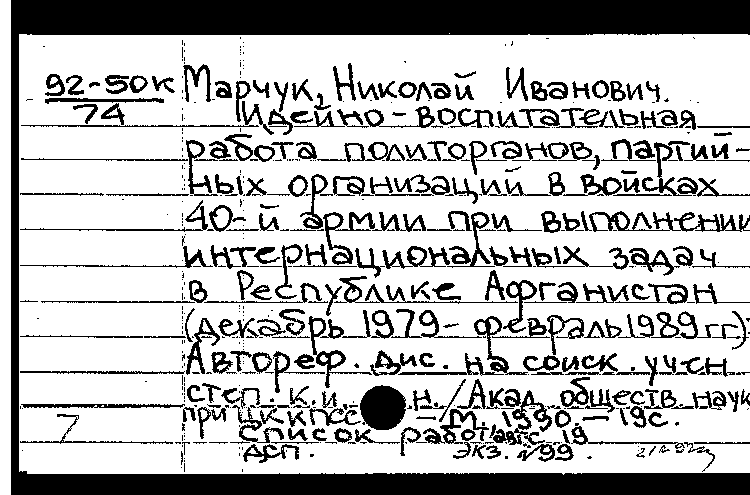 92-50к Марчук, Николай Иванович.
74 Идейно-воспитательная
работа политорганов, партий-
ных организаций в войсках
40-й армии при выполнении
интернациональных задач
в Республике Афганистан
(декабрь 1979-февраль 1989 гг.):
Автореф. дис. на соиск. учен
степ. к.и. н./Акад обществ. наук
при ЦК КПСС. – М., 1990. – 19с.
7 Список работ с. 19
ДСП. экз. №99.